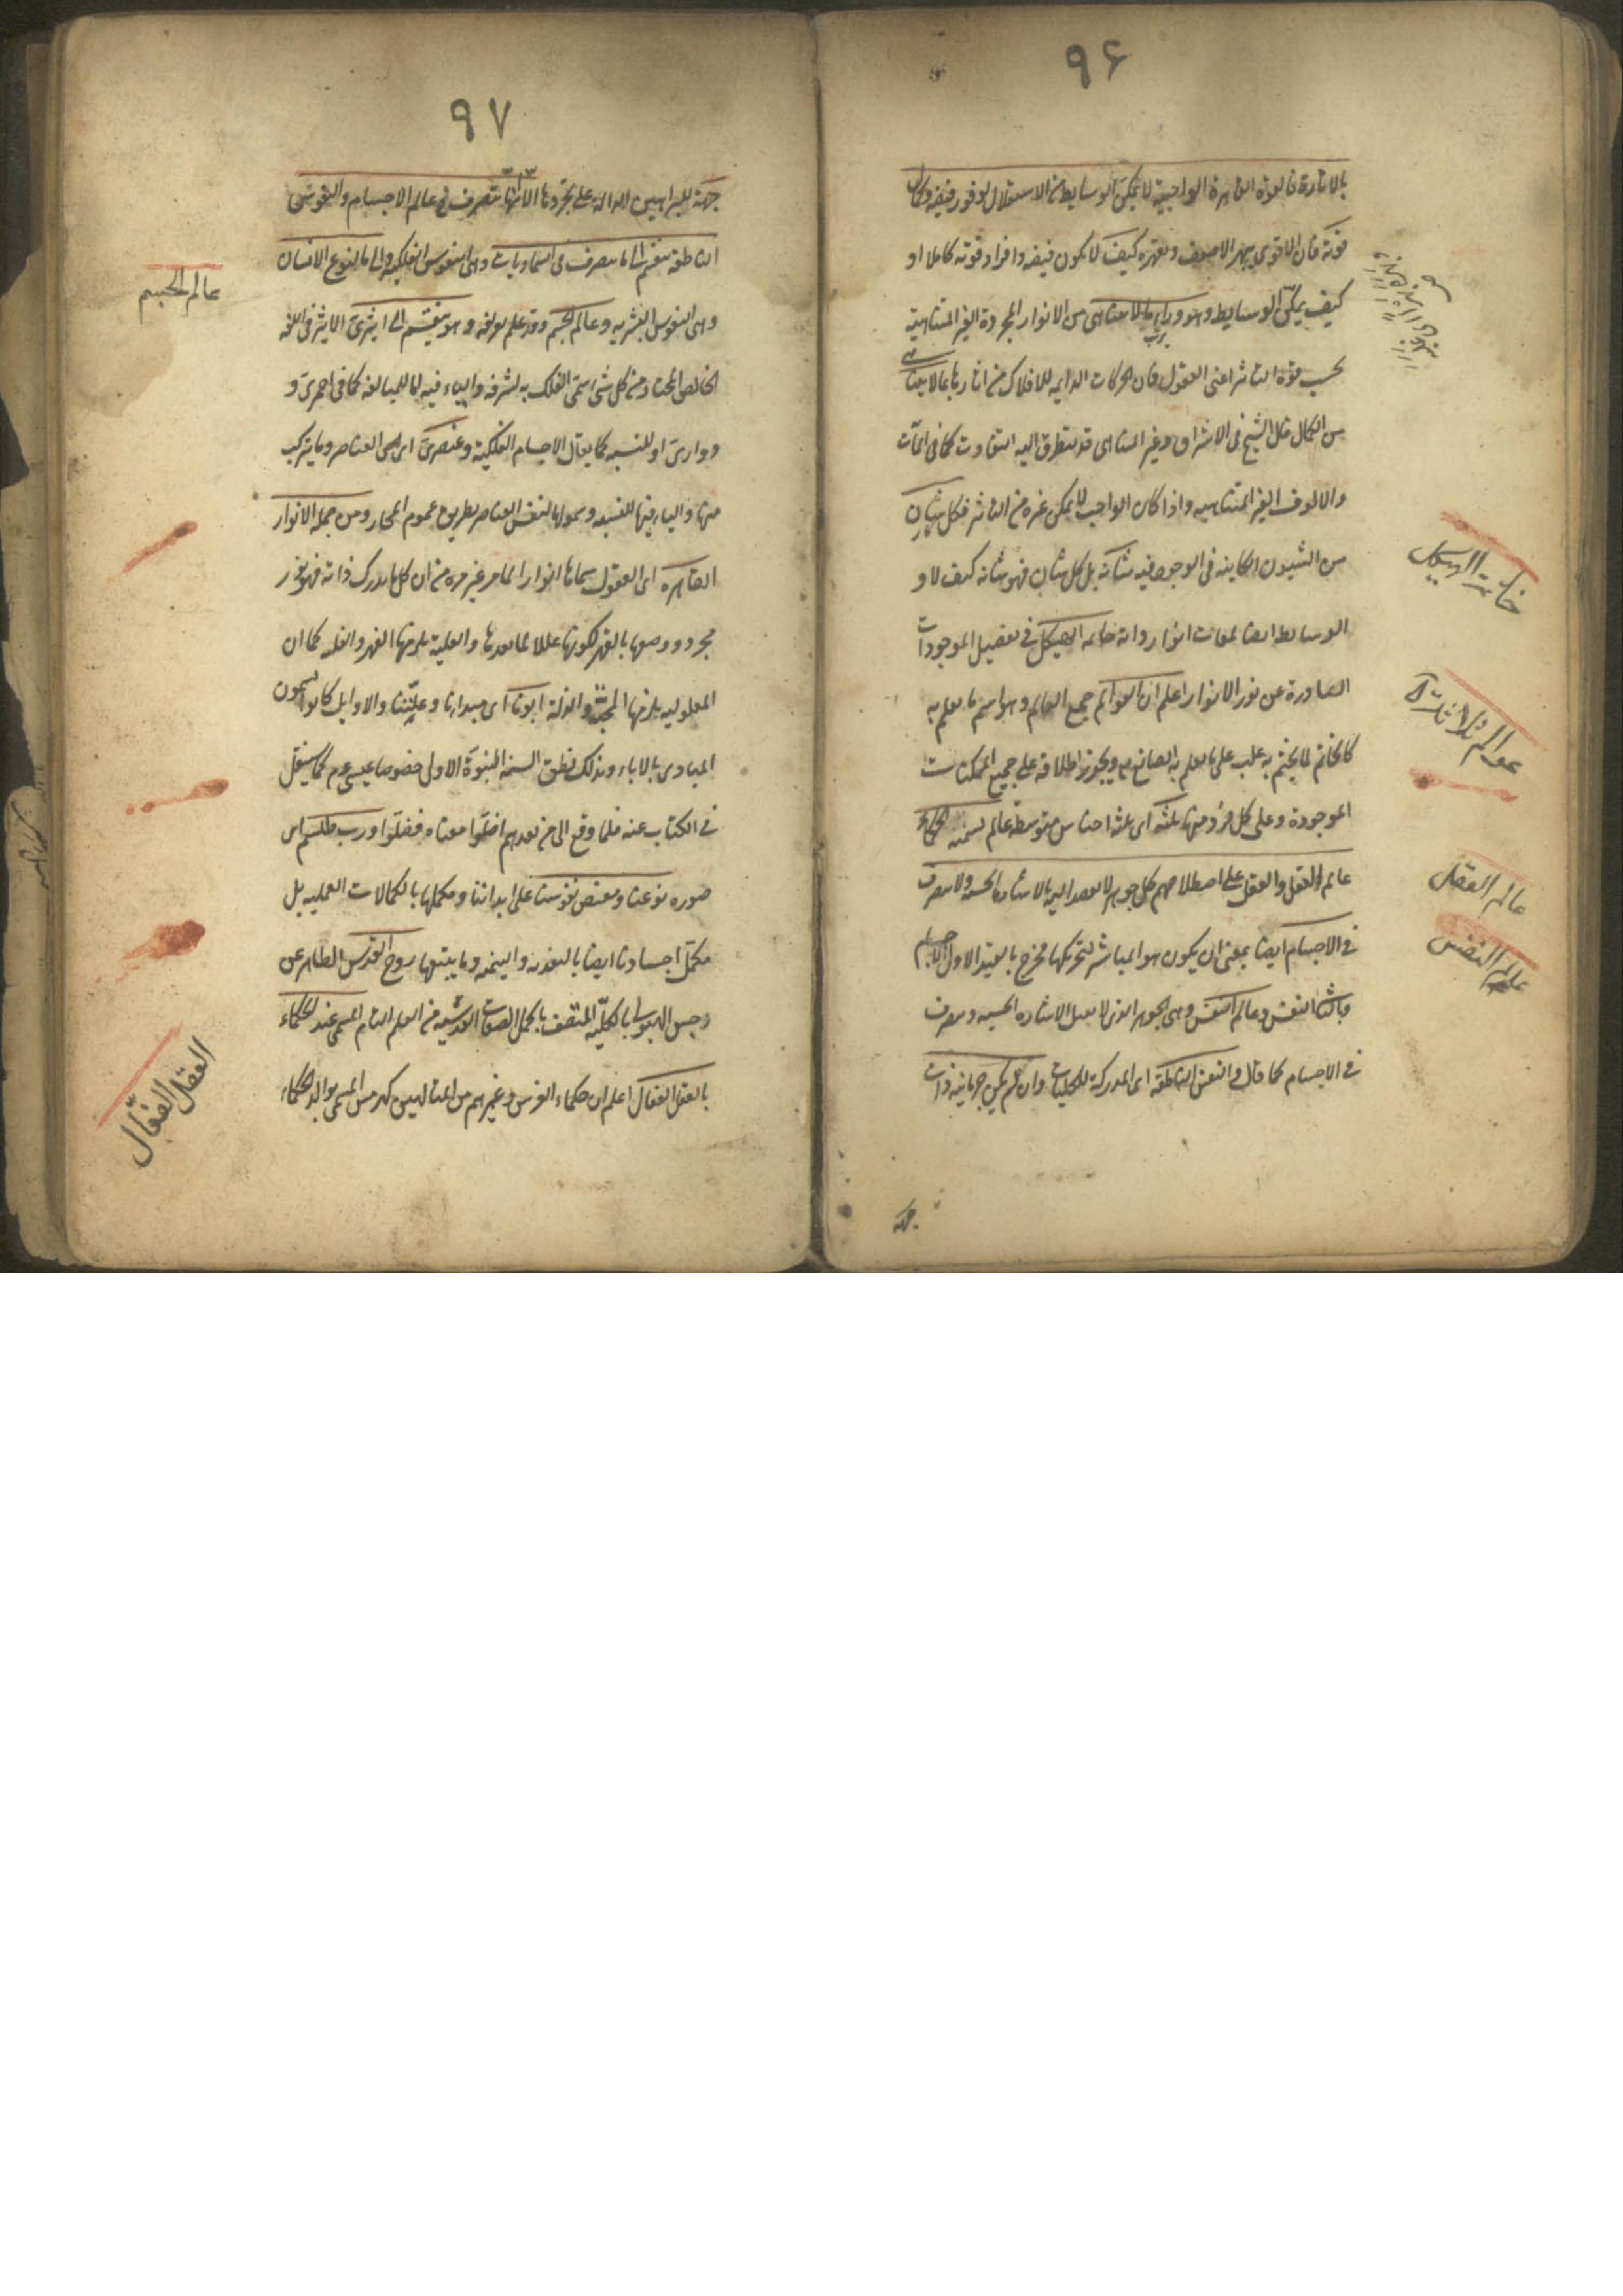 ٩۶
بالاشارة فالقوة القاهرة الواجبية لا يمكن الوسايط من الاستقلال لوفور فيضه وكمال
قوته فان الاقوى يبهر الاضعف ويقهره كيف لا يكون فيضه وافرا وقوته كاملا او
كيف يمكن الوسايط وهو وراء ما لا يتناهى من الانوار المجردة الغير المتناهية
بحسب قوة التاثير اعنى العقول فان الحركات الدايمه للافلاك من اثارها بما لا يتناهى
من الكمال قال الشيخ فى الاشراق وغير المتناهى قد يتطرق اليه التفاوت كما فى المآت
والالوف الغير المتناهيه واذا كان الواجب لا يمكن غيره من التاثير فكل شان
من الشيون الكاينه فى الوجود فيه شانه بل كل شان فهو شانه كيف لا و
الوسايط ايضا لمعات انوار ذاته خاتمه الهيكل فى تفصيل الموجودات
الصادرة عن نور الانوار اعلم ان العوالم جمع العالم وهو اسم ما يعلم به
كالخاتم لما يختم به غلب على ما يعلم به الصانع ويجوز اطلاقه على جميع الممكنات
الموجودة وعلى كل فرد منها ثلثه اى ثلثة اجناس متوسطة عالم يسميه الحكماء
عالم العقل والعقل على اصطلاحهم كل جوهر لا يقصد اليه بالاشاره الحسيه ولا يتصرف
فى الاجسام ايضا بمعنى ان يكون هو المباشر لتحريكها فخرج بالقيد الاول الاجسام
وبالثانى النفس وعالم النفس وهى الجوهر الذى لا يقبل الاشاره الحسيه ويتصرف
فى الاجسام كما قال والنفس الناطقه اى المدركة للكليات وان لم يكن جرمانية ذات
جهة
خاتمة الهيكل
عوالم ثلاثة
عالم العقل
عالم النفس
٩٧
جهة للبراهين الدالة على تجردها الا انها تتصرف فى عالم الاجسام والنفوس
الناطقه ينقسم الى ما يتصرف فى السماويات وهى النفوس الفلكيه والى ما لنوع الانسان
وهى النفوس البشريه وعالم الجسم وقد علم تعريفه وهو ينقسم الى اثيرى الاثير فى اللغه
الخالص المختار من كل شى سمى الفلك به لشرفه والياء فيه اما للمبالغه كما فى احمرى و
دوارى او للنسبه كما يقال الاجسام الفلكية وعنصرى اى الى العناصر وما يتركب
منها والياء فيها للنسبه وشمولها لنفس العناصر بطريق عموم المجاز ومن جمله الانوار
القاهره اى العقول سماها انوارا لما مر غير مره من ان كل ما يدرك ذاته فهو نور
مجرد ووصفها بالقهر لكونها عللا لما بعدها والعلية يلزمها القهر والغلبه كما ان
المعلوليه يلزمها المحبة والذلة ابونا اى مبدانا وعلتنا والاوايل كانوا يسمون
المبادى بالاباء وبذلك نطق السنه النبوة الاولى خصوصا عيسى عم كما سينقل
فى الكتاب عنه فلما وقع الى من بعدهم اضلوا معناه فضلوا ورب طلسم اى
صوره نوعنا ومفيض نفوسنا على ابداننا ومكملها بالكمالات العمليه بل
مكمل اجسادنا ايضا بالتغذيه والتنميه وما يتبعها روح القدس الطاهر عن
رجس الهيولى بالكليه المتصف باكمل الصفات القدسيه من العلم التام المسمى عند الحكماء
بالعقل الفعال اعلم ان حكماء الفرس وغيرهم من المتالهين كهرمس المسمى بوالد الحكماء
عالم الجسم
العقل الفعّال